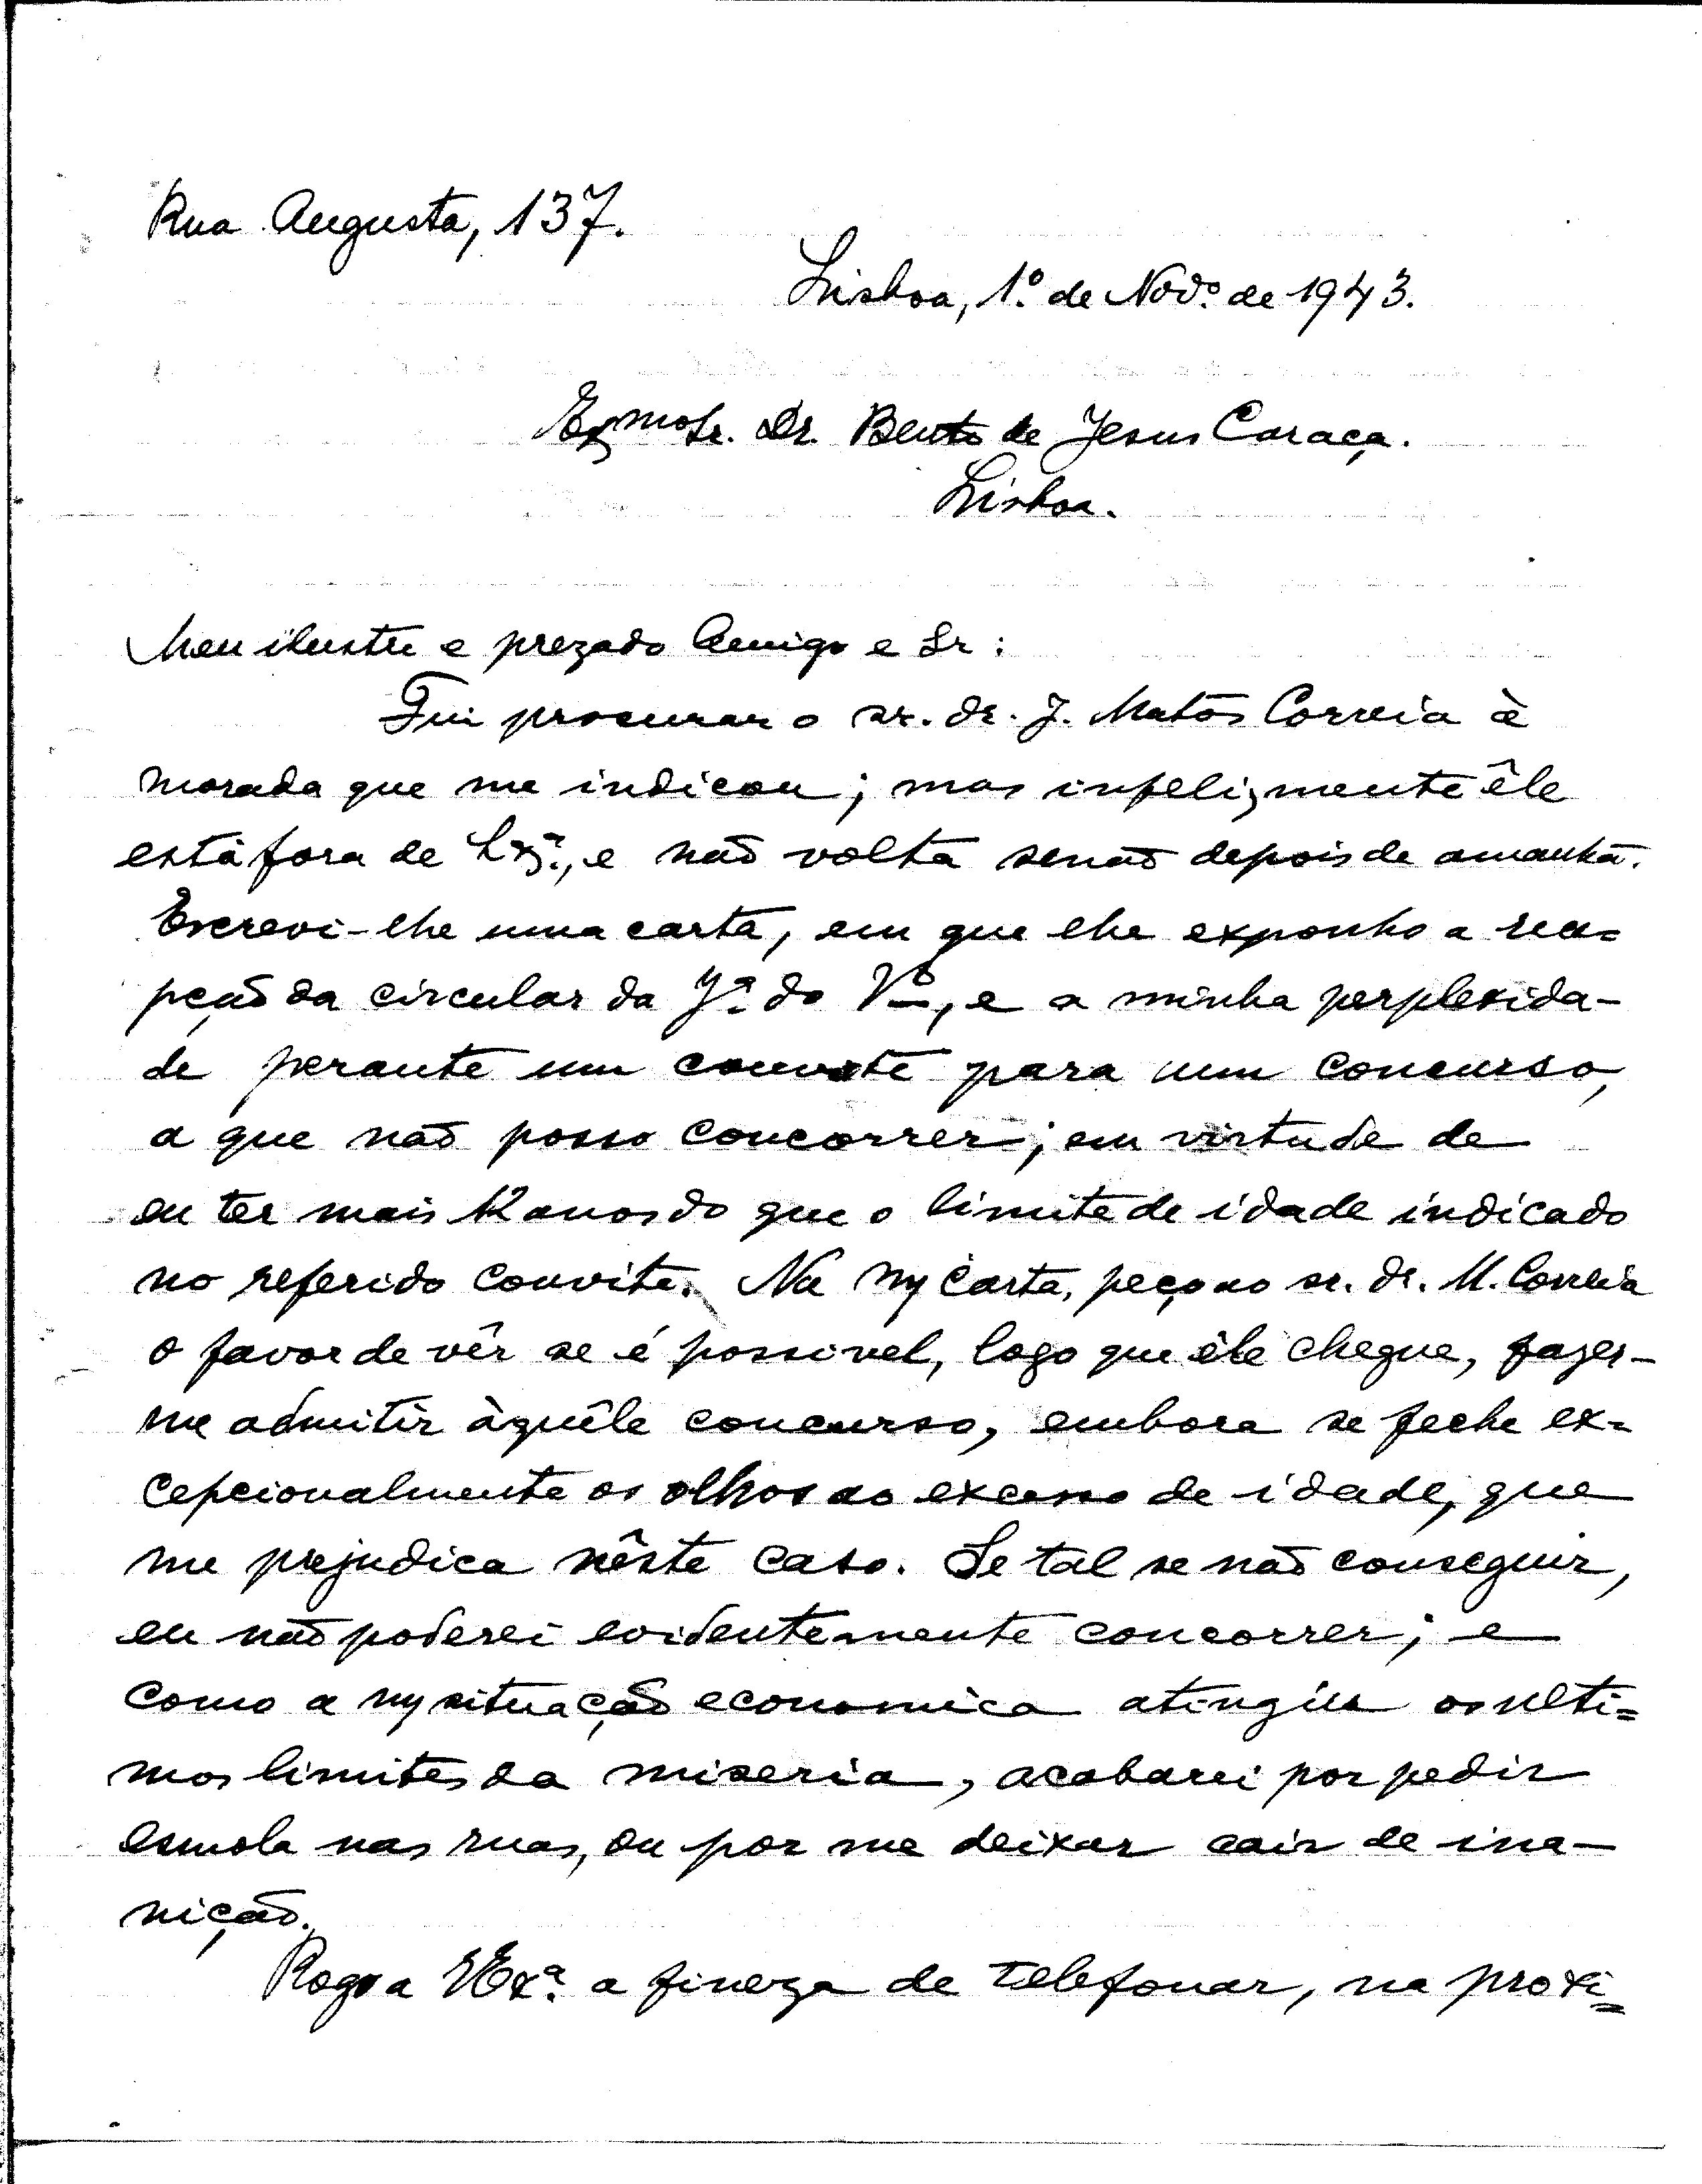 Rua Augusta, 137.
Lisboa, 1.º de Nov.º de 1943.
Exmo Sr. Dr. Bento de Jesus Caraça.
Lisboa.
Meu ilustre e prezado Amigo e Sr:
Fui procurar o sr. dr. J. Matos Correia à
morada que me indicou; mas infelizmente êle
está fora de Lxª., e não volta senão depois de amanhã.
Escrevi-lhe uma carta, em que lhe exponho a rea=
pção da circular da Jª. do Vº, e a minha perplexida-
de perante um convite para um concurso,
a que não posso concorrer; em virtude de
eu ter mais 12 anos do que o limite de idade indicado
no referido convite. Na mª carta, peço ao sr. dr. M. Correia
o favor de vêr se é possivel, logo que êle chegue, fazer-
me admitir àquêle concurso, embora se feche ex=
cepcionalmente os olhos ao excesso de idade, que
me prejudica nêste caso. Se tal se não conseguir,
eu não poderei evidentemente concorrer; e
como a mª situação economica atingiu os ulti=
mos limites da miseria, acabarei por pedir
esmola nas ruas, ou por me deixar cair de ina-
nição.
Rogo a VExª. a fineza de telefonar, na proxi=